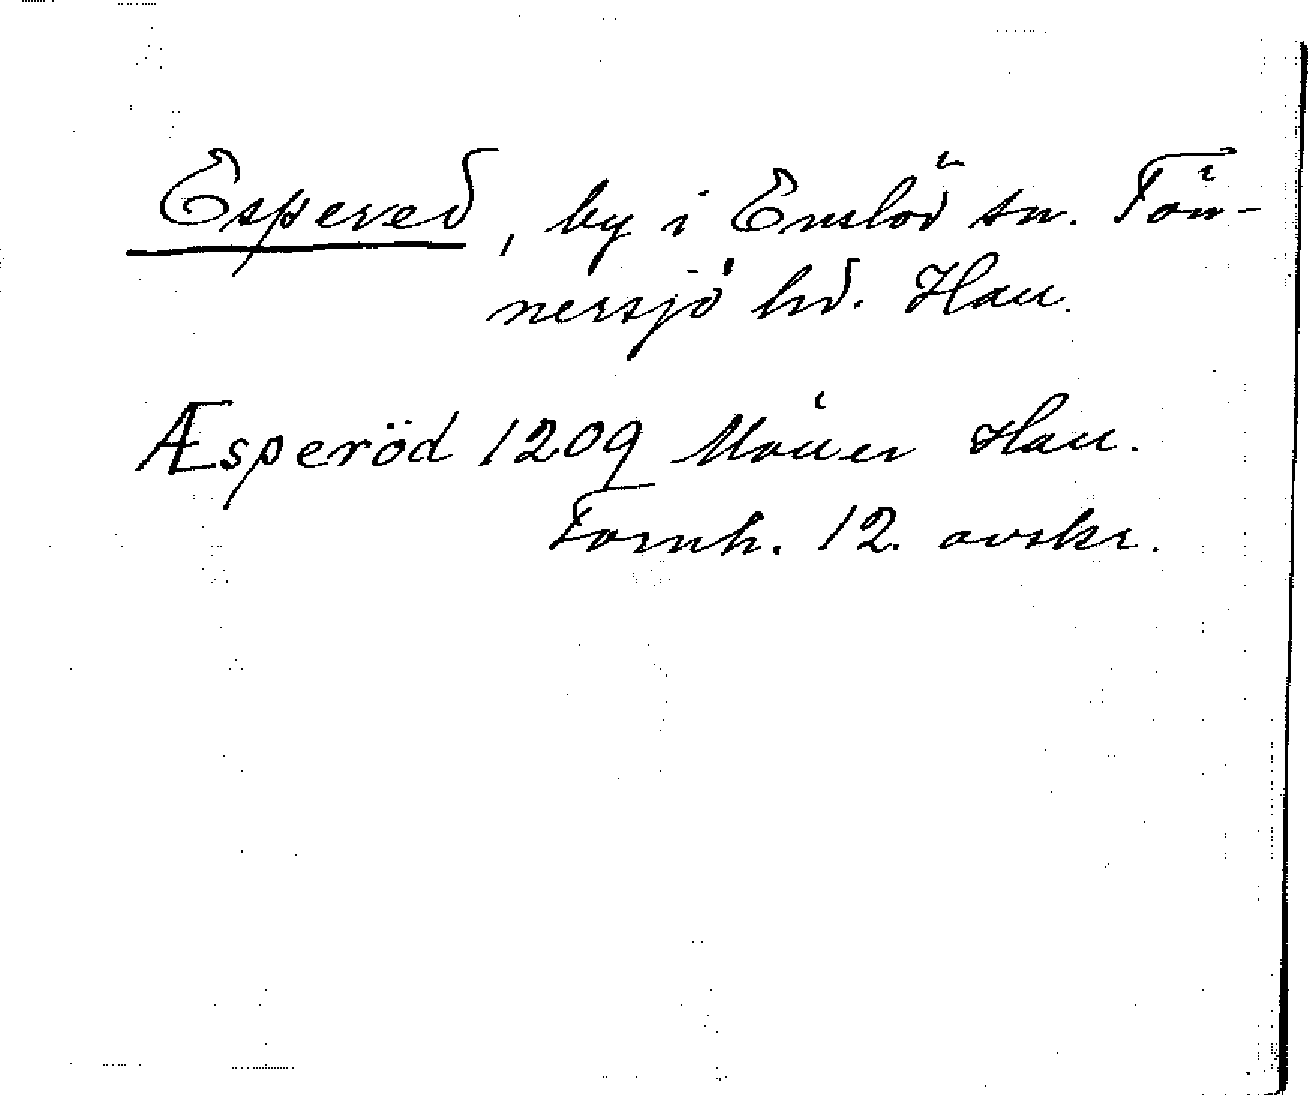 Espered, by i Enslöv sn. Tön-
nersjö hd. Hall.
Æsperöd 1209 Möller Hall.
Fornh. 12. avskr.